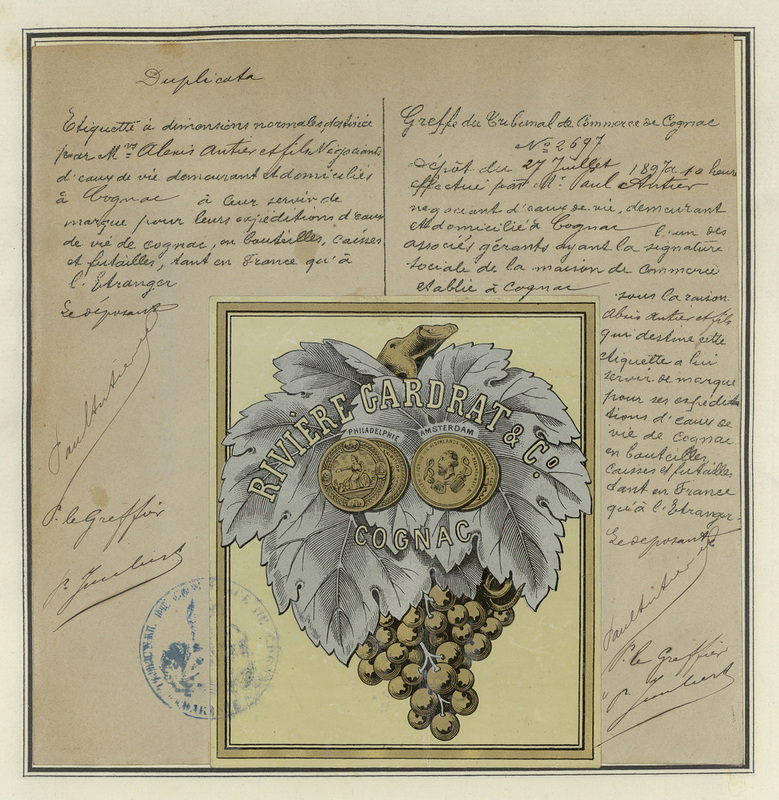 Duplicata
Etiquette à dimensions normales destinée
pour Mrs Alexis Antier et fils Négociants
d'eaux de vie demeurant et domiciliés
à Cognac à leur servir de
marque pour leurs expéditions d'eaux
de vie de cognac, en bouteilles, caisses
et futailles, tant en France qu'à
l'Etranger
Le déposant
Paul Antier
P. le Greffier
Greffe du Tribunal de Commerce de Cognac
No 2697
Dépôt du 27 Juillet 1897 à 10 heures
effectué par M. Paul Antier
négociant d'eaux de vie, demeurant
et domicilié à Cognac l'un des
associés gérants ayant la signature
sociale de la maison de commerce
établie à Cognac
sous la raison
Alexis Antier et fils
qui destine cette
étiquette a lui
servir de marque
pour ses expédi
tions d'eaux de
vie de cognac
en bouteilles,
caisses et futailles
tant en France
qu'à l'Etranger
Le déposant
Paul Antier
P. le Greffier
RIVIÈRE GARDRAT & Co.
PHILADELPHIE AMSTERDAM
COGNAC